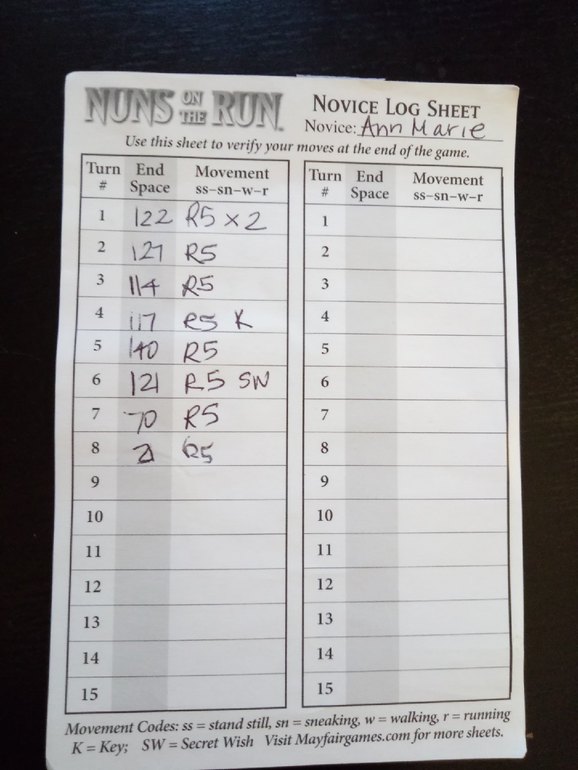 NUNS ON THE RUN
NOVICE LOG SHEET
Novice: Ann Marie
Use this sheet to verify your moves at the end of the game.
Turn # End Space Movement ss–sn–w–r
1 122 R5 x 2
2 127 R5
3 114 R5
4 117 R5 K
5 140 R5
6 121 R5 SW
7 70 R5
8 R5
9
10
11
12
13
14
15
Turn # End Space Movement ss–sn–w–r
1
2
3
4
5
6
7
8
9
10
11
12
13
14
15
Movement Codes: ss = stand still, sn = sneaking, w = walking, r = running
K = Key; SW = Secret Wish Visit Mayfairgames.com for more sheets.